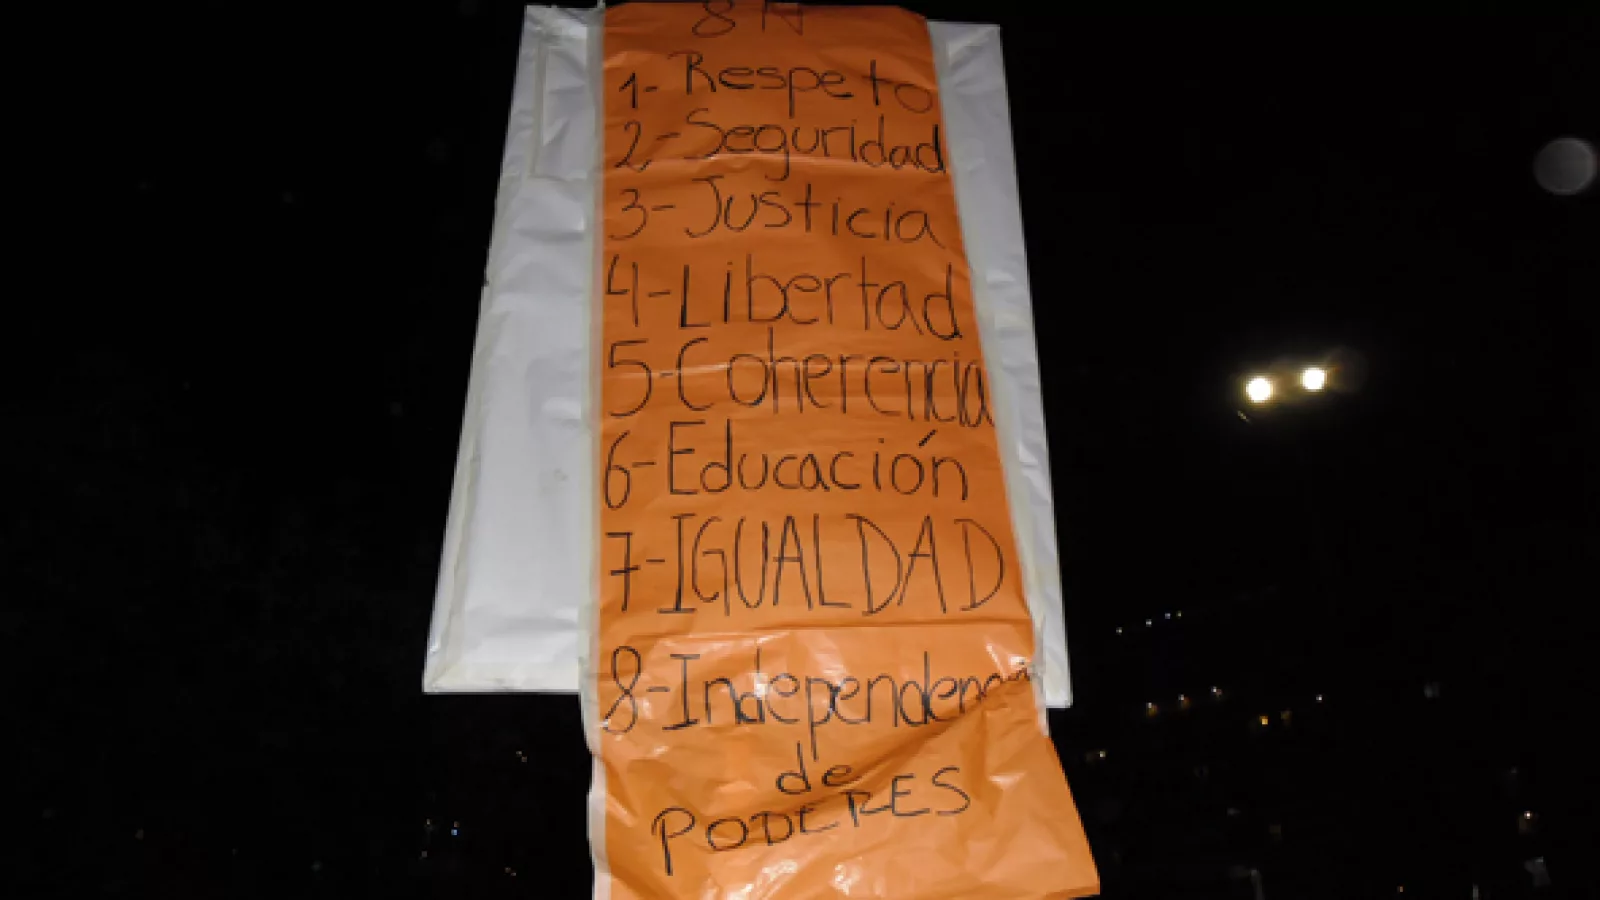 8N
1-Respeto
2-Seguridad
3-Justicia
4-Libertad
5-Coherencia
6-Educación
7-IGUALDAD
8-Independencia
de
PODERES